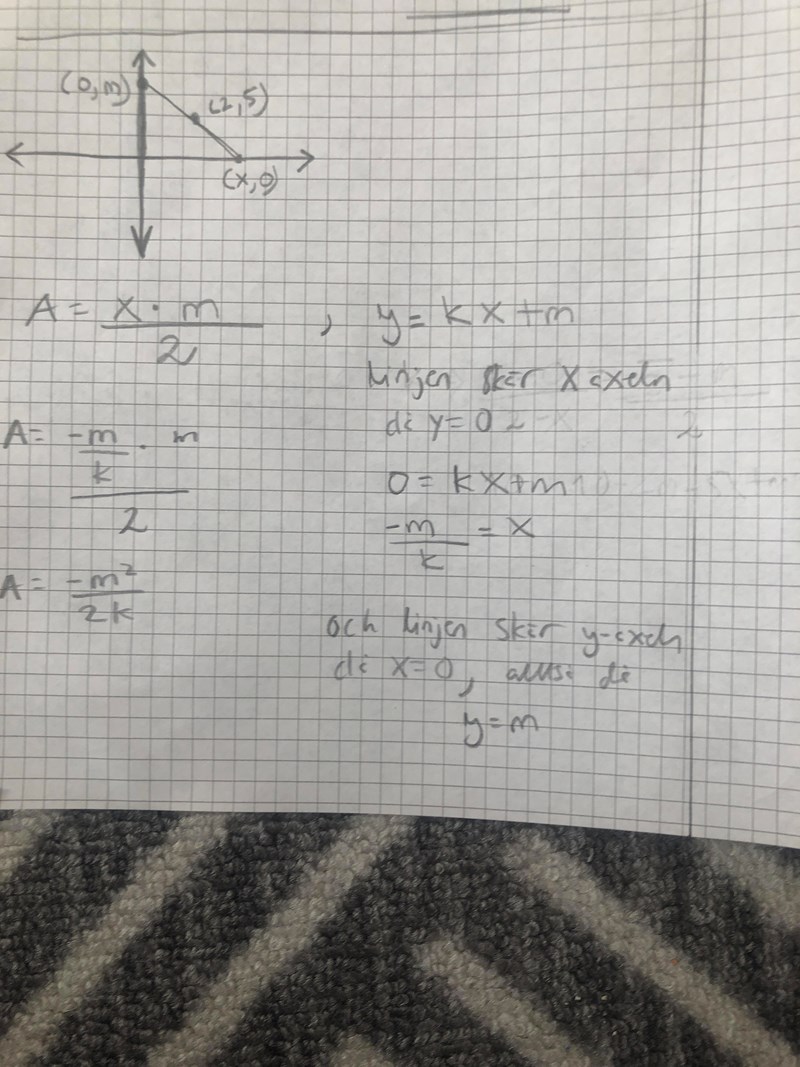 (0,m)
(2,5)
(x,0)
A = x · m / 2 , y = kx + m
linjen skär x axeln
då y = 0
A = -m/k · m / 2
0 = kx + m
-m/k = x
A = -m²/2k
och linjen skär y-axeln
då x = 0, alltså då
y = m